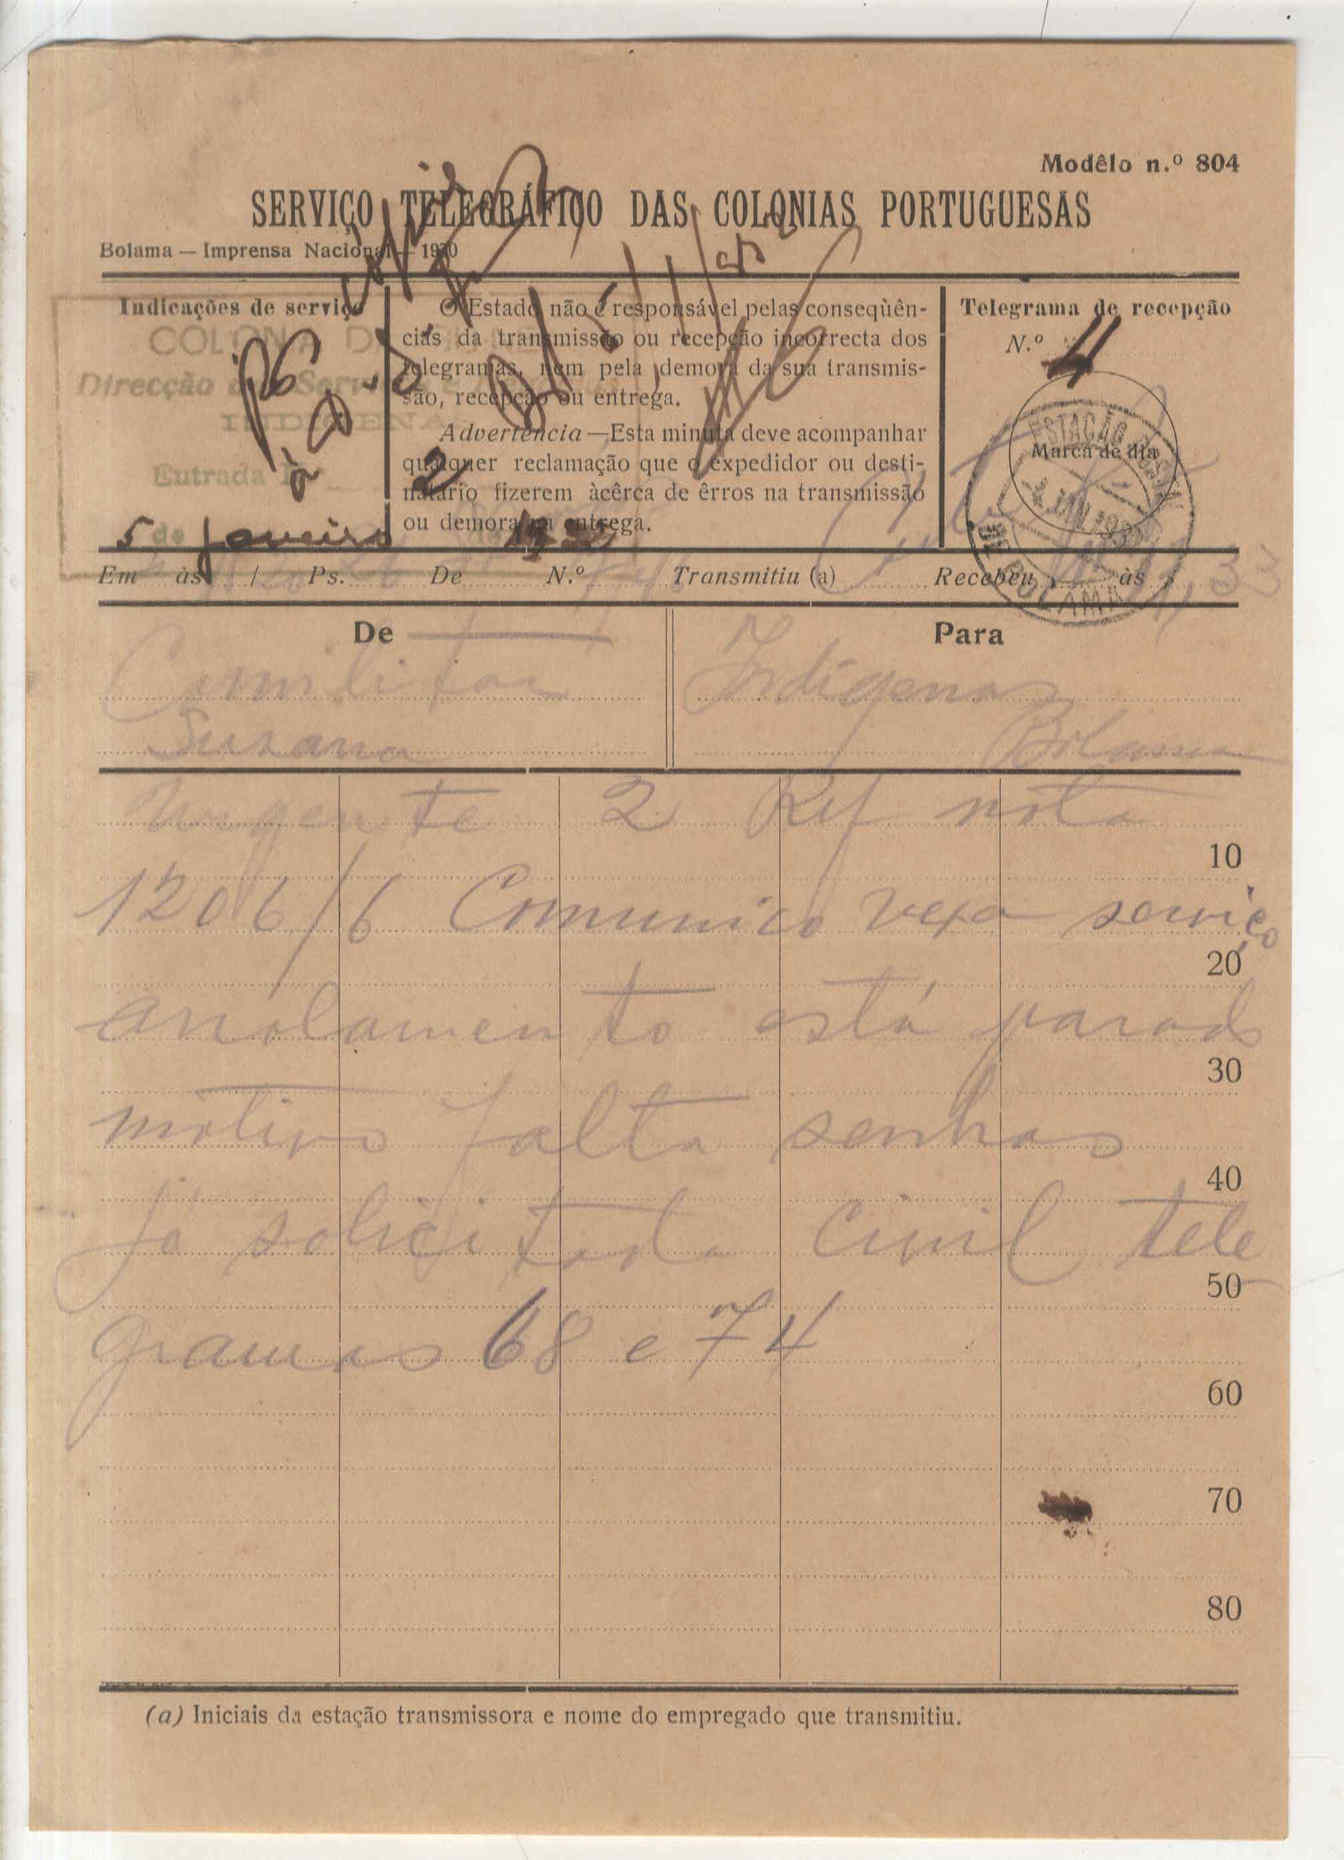 Modêlo n.º 804
SERVIÇO TELEGRÁFICO DAS COLONIAS PORTUGUESAS
Bolama — Imprensa Nacional — 1930
Indicações de serviço
COLONIA
Direcção dos Serviços
INDIGENAS
Entrada
5 de Janeiro de 1932
O Estado não é responsável pelas conseqùên-
cias da transmissão ou recepção incorrecta dos
telegramas, nem pela demora da sua transmis-
são, recepção ou entrega.
Advertência—Esta minuta deve acompanhar
qualquer reclamação que o expedidor ou desti-
natário fizerem àcêrca de êrros na transmissão
ou demora na entrega.
2
Telegrama de recepção
N.º 4
Marca de dia
ESTAÇÃO POSTAL
4 JAN 193
DE BOLAMA
Em às / Ps. De N.º Transmitiu (a) Recebeu às
De
Cumilitar
Suzana
Para
Indígenas
Bolama
Urgente 2 Ref nota
1206/6 Comunico vexa serviço
arrolamento está parado
motivo falta senhas
já solicitada Civil tele
gramas 68 e 74
10
20
30
40
50
60
70
80
(a) Iniciais da estação transmissora e nome do empregado que transmitiu.